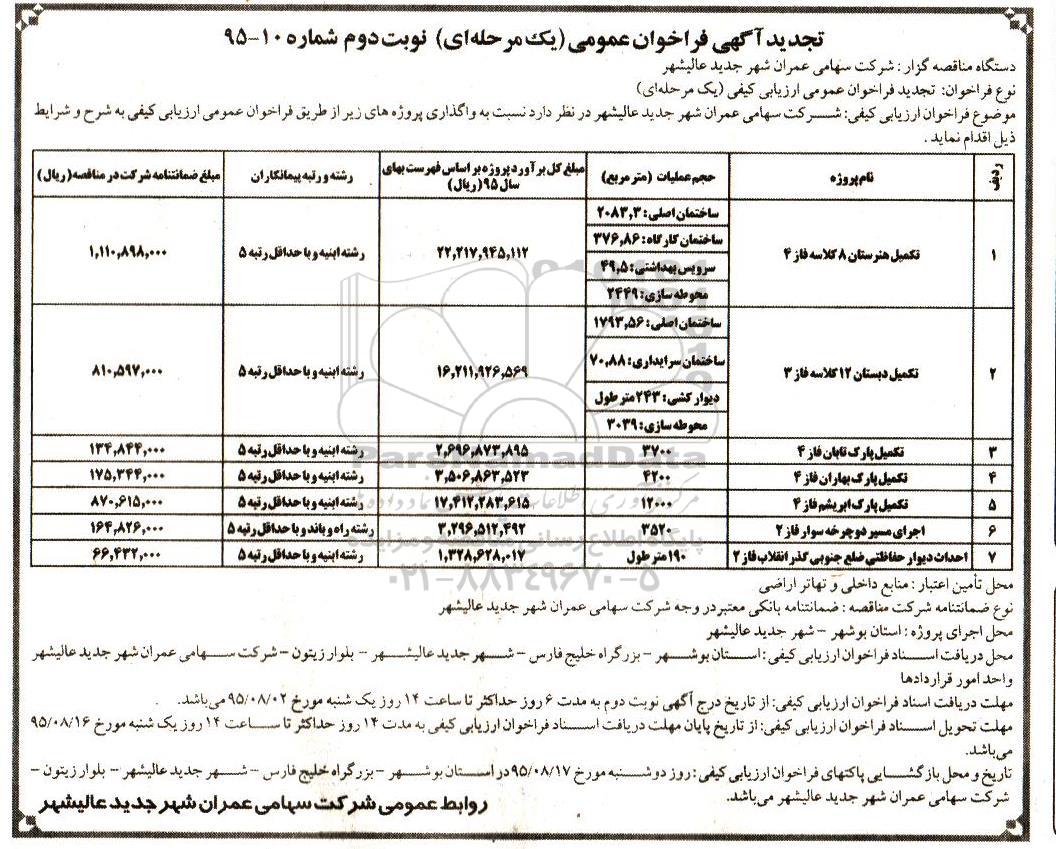 تجدید آگهی فراخوان عمومی (یک مرحله‌ای) نوبت دوم شماره ۱۰-۹۵
دستگاه مناقصه گزار : شرکت سهامی عمران شهر جدید عالیشهر
نوع فراخوان: تجدید فراخوان عمومی ارزیابی کیفی (یک مرحله‌ای)
موضوع فراخوان ارزیابی کیفی: شرکت سهامی عمران شهر جدید عالیشهر در نظر دارد نسبت به واگذاری پروژه های زیر از طریق فراخوان عمومی ارزیابی کیفی به شرح و شرایط
ذیل اقدام نماید .
ردیف | نام پروژه | حجم عملیات (متر مربع) | مبلغ کل برآورد پروژه بر اساس فهرست بهای سال ۹۵ (ریال) | رشته و رتبه پیمانکاران | مبلغ ضمانتنامه شرکت در مناقصه (ریال)
۱ | تکمیل هنرستان ۸ کلاسه فاز ۴ | ساختمان اصلی: ۲۰۸۳,۳ | ۲۲,۲۱۷,۹۴۵,۱۱۲ | رشته ابنیه و با حداقل رتبه ۵ | ۱,۱۱۰,۸۹۸,۰۰۰
ساختمان کارگاه: ۳۷۶,۸۶
سرویس بهداشتی: ۴۹,۵
محوطه سازی: ۲۴۴۹
۲ | تکمیل دبستان ۱۲ کلاسه فاز ۳ | ساختمان اصلی: ۱۷۹۳,۵۶ | ۱۶,۲۱۱,۹۲۶,۵۶۹ | رشته ابنیه و با حداقل رتبه ۵ | ۸۱۰,۵۹۷,۰۰۰
ساختمان سرایداری: ۷۰,۸۸
دیوار کشی: ۲۴۳ متر طول
محوطه سازی: ۳۰۳۹
۳ | تکمیل پارک تابان فاز ۴ | ۳۷۰۰ | ۲,۶۹۶,۸۷۳,۸۹۵ | رشته ابنیه و با حداقل رتبه ۵ | ۱۳۴,۸۴۴,۰۰۰
۴ | تکمیل پارک بهاران فاز ۴ | ۴۲۰۰ | ۳,۵۰۶,۸۶۳,۵۲۳ | رشته ابنیه و با حداقل رتبه ۵ | ۱۷۵,۳۴۴,۰۰۰
۵ | تکمیل پارک ابریشم فاز ۴ | ۱۲۰۰۰ | ۱۷,۴۱۲,۲۸۳,۶۱۵ | رشته ابنیه و با حداقل رتبه ۵ | ۸۷۰,۶۱۵,۰۰۰
۶ | اجرای مسیر دوچرخه سوار فاز ۲ | ۳۵۲۰ | ۳,۲۹۶,۵۱۲,۴۹۲ | رشته راه و باند و با حداقل رتبه ۵ | ۱۶۴,۸۲۶,۰۰۰
۷ | احداث دیوار حفاظتی ضلع جنوبی گذر انقلاب فاز ۲ | ۱۹۰ متر طول | ۱,۳۲۸,۶۲۸,۰۱۷ | رشته ابنیه و با حداقل رتبه ۵ | ۶۶,۴۳۲,۰۰۰
محل تأمین اعتبار : منابع داخلی و تهاتر اراضی
نوع ضمانتنامه شرکت مناقصه : ضمانتنامه بانکی معتبر در وجه شرکت سهامی عمران شهر جدید عالیشهر
محل اجرای پروژه : استان بوشهر - شهر جدید عالیشهر
محل دریافت اسناد فراخوان ارزیابی کیفی: استان بوشهر - بزرگراه خلیج فارس - شهر جدید عالیشهر - بلوار زیتون - شرکت سهامی عمران شهر جدید عالیشهر
واحد امور قراردادها
مهلت دریافت اسناد فراخوان ارزیابی کیفی: از تاریخ درج آگهی نوبت دوم به مدت ۶ روز حداکثر تا ساعت ۱۴ روز یک شنبه مورخ ۹۵/۰۸/۰۲ می‌باشد.
مهلت تحویل اسناد فراخوان ارزیابی کیفی: از تاریخ پایان مهلت دریافت اسناد فراخوان ارزیابی کیفی به مدت ۱۴ روز حداکثر تا ساعت ۱۴ روز یک شنبه مورخ ۹۵/۰۸/۱۶
می‌باشد.
تاریخ و محل بازگشایی پاکتهای فراخوان ارزیابی کیفی : روز دوشنبه مورخ ۹۵/۰۸/۱۷ در استان بوشهر - بزرگراه خلیج فارس - شهر جدید عالیشهر - بلوار زیتون -
شرکت سهامی عمران شهر جدید عالیشهر می‌باشد.
روابط عمومی شرکت سهامی عمران شهر جدید عالیشهر
ParsNamadData
پایگاه اطلاع رسانی مناقصه و مزایده
۰۲۱-۸۸۳۴۹۶۷۰-۵